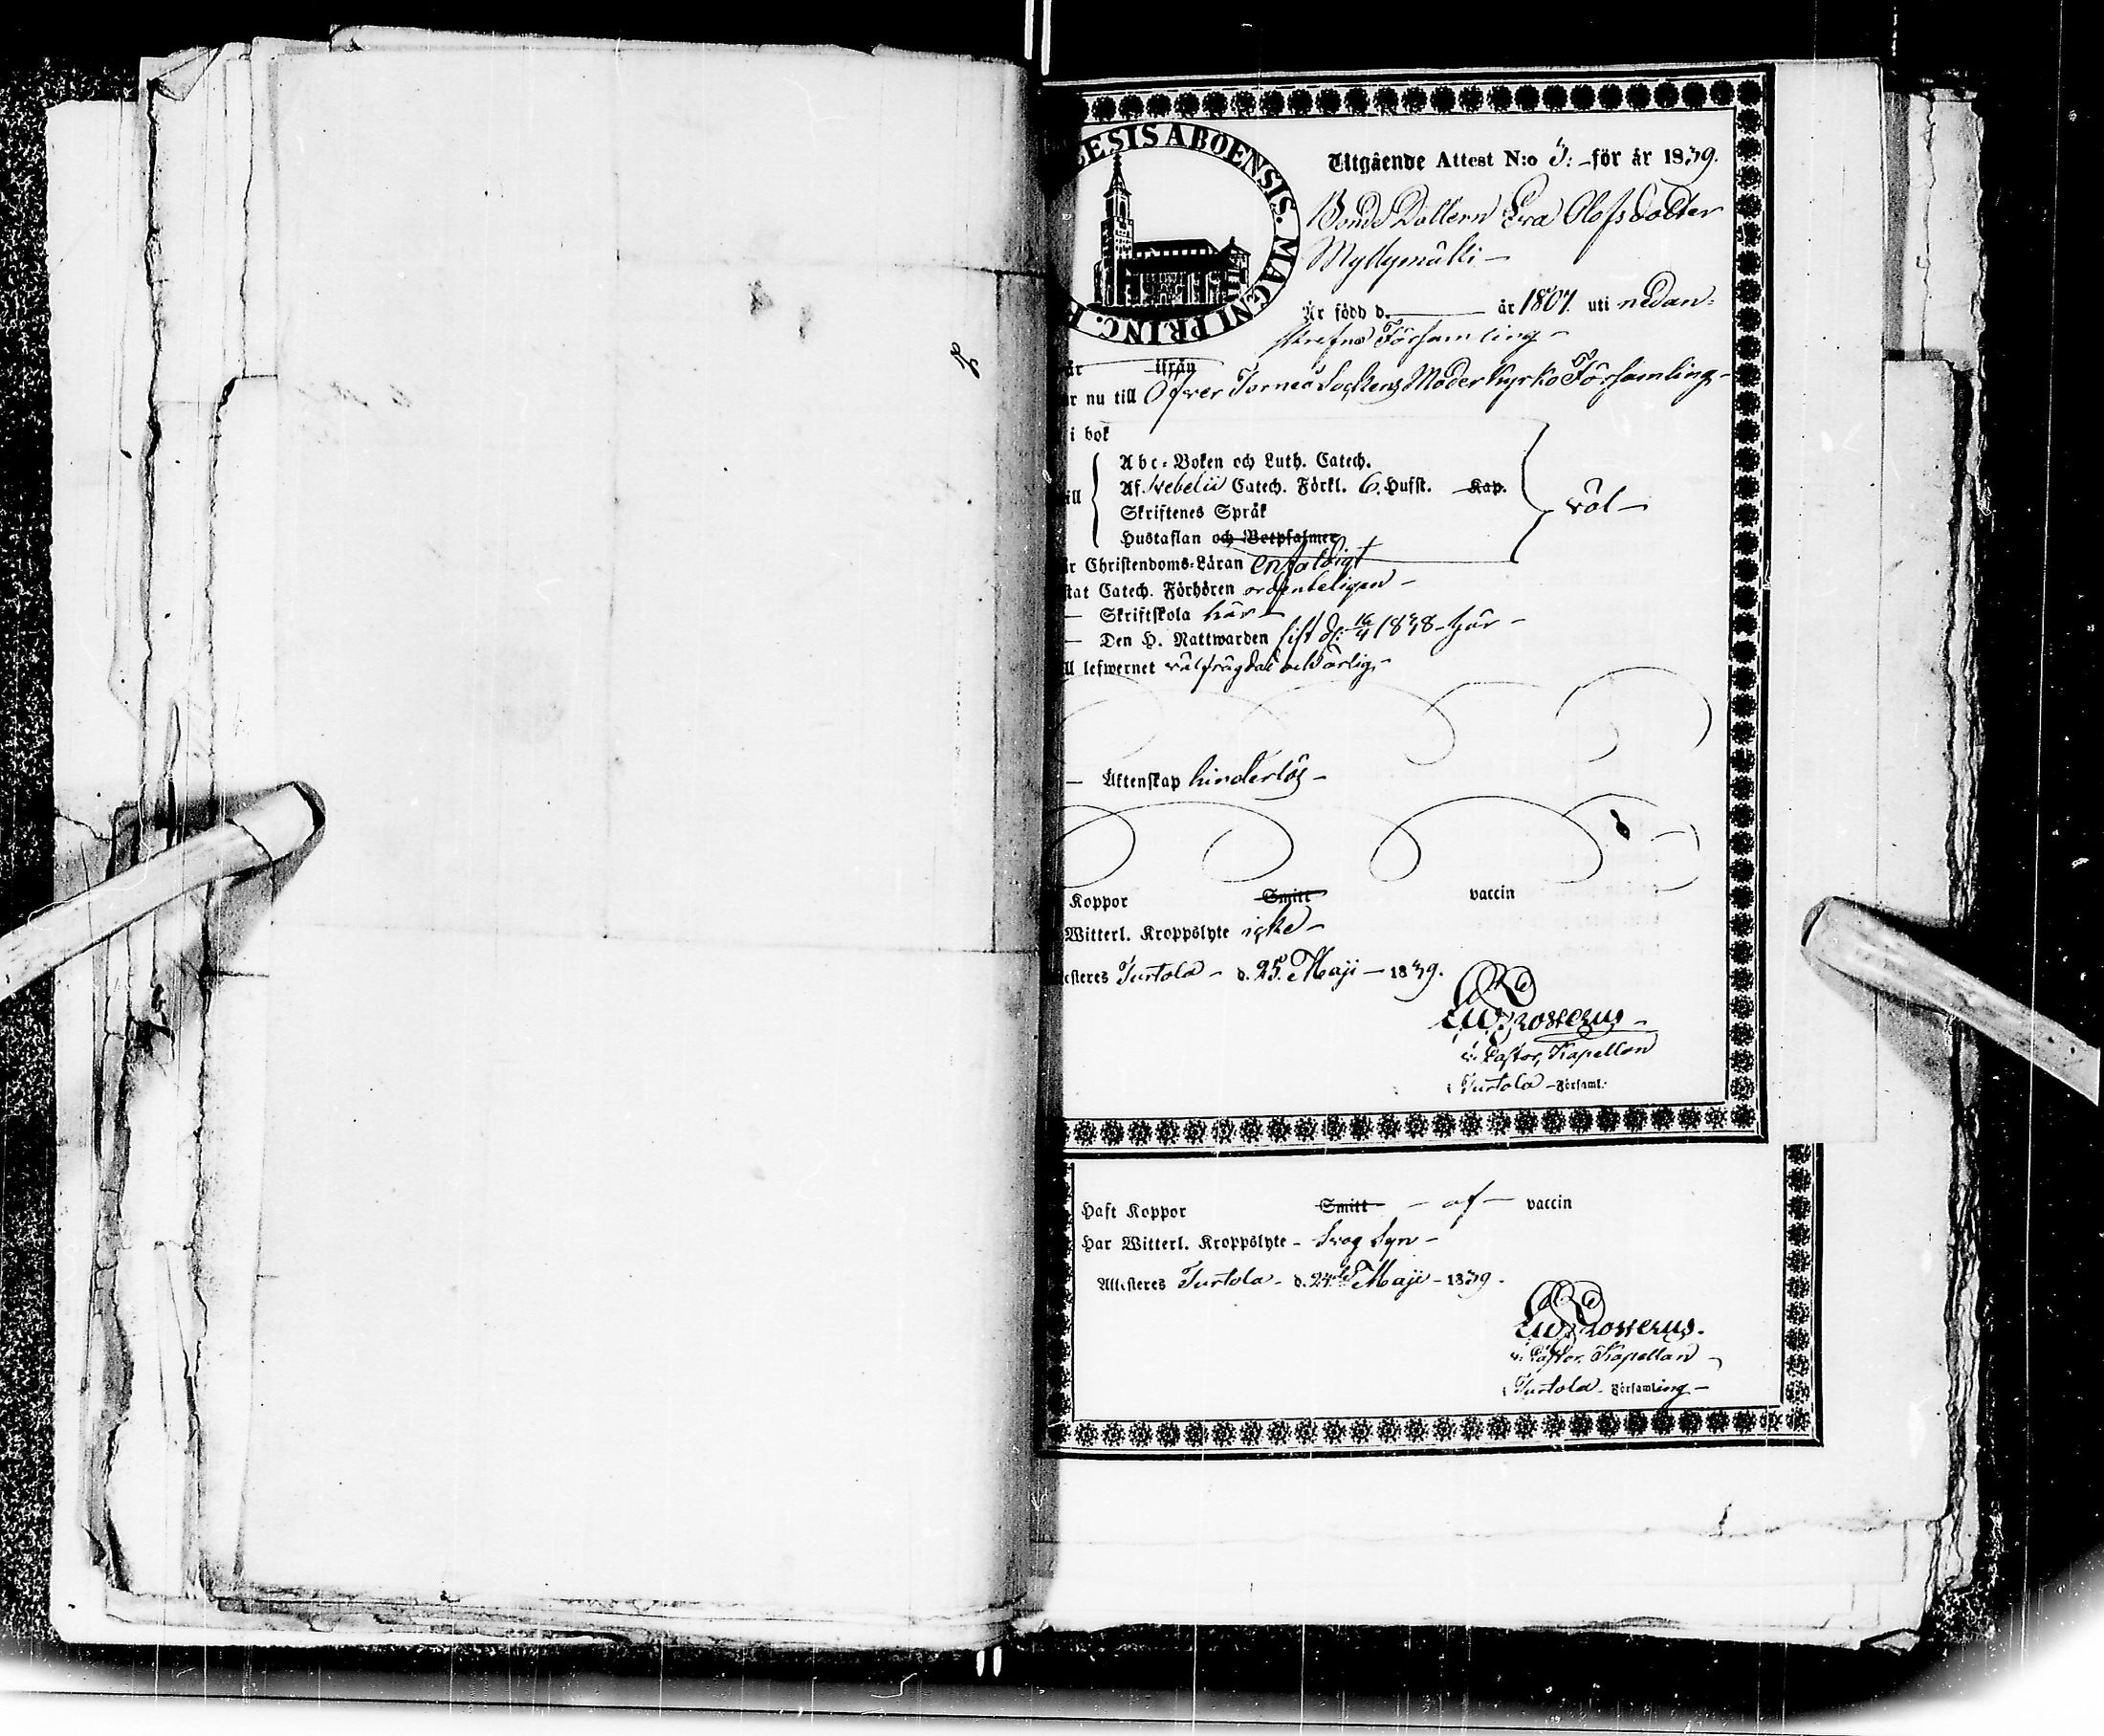 ESIS ABOENSIS. MAGNI PRINC.
Utgående Attest N:o 3: för år 1839.
Bonde Dottern Eva Olofsdotter
Myllymäki
Är född d. år 1807. uti nedan-
skrefne Församling
ifrån
r nu till Öfver Torneå Sockens Moderkyrko Församling
i bok
Abc-Boken och Luth. Catech.
Af Svebelii Catech. Förkl. 6. Hufst. Kap.
Skriftenes Språk
väl
Hustaflan och Botpsalmer
r Christendoms-Läran enfaldigt
tat Catech. Förhören ordenteligen
Skriftskola här
Den H. Nattwarden sist d. 16/4 1838 här
ll lefwernet välfrägdad och ärlig
Äktenskap hinderlös
Koppor Smitt vaccin
Witterl. Kroppslyte icke
esteres Turtola d. 25. Maji 1839.
v. Pastor, Kapellan
i Turtola Församl.
Haft Koppor Smitt af vaccin
Har Witterl. Kroppslyte Svag Syn
Attesteres Turtola d. 24de Maji 1839.
v. Pastor, Kapellan
i Turtola Församling